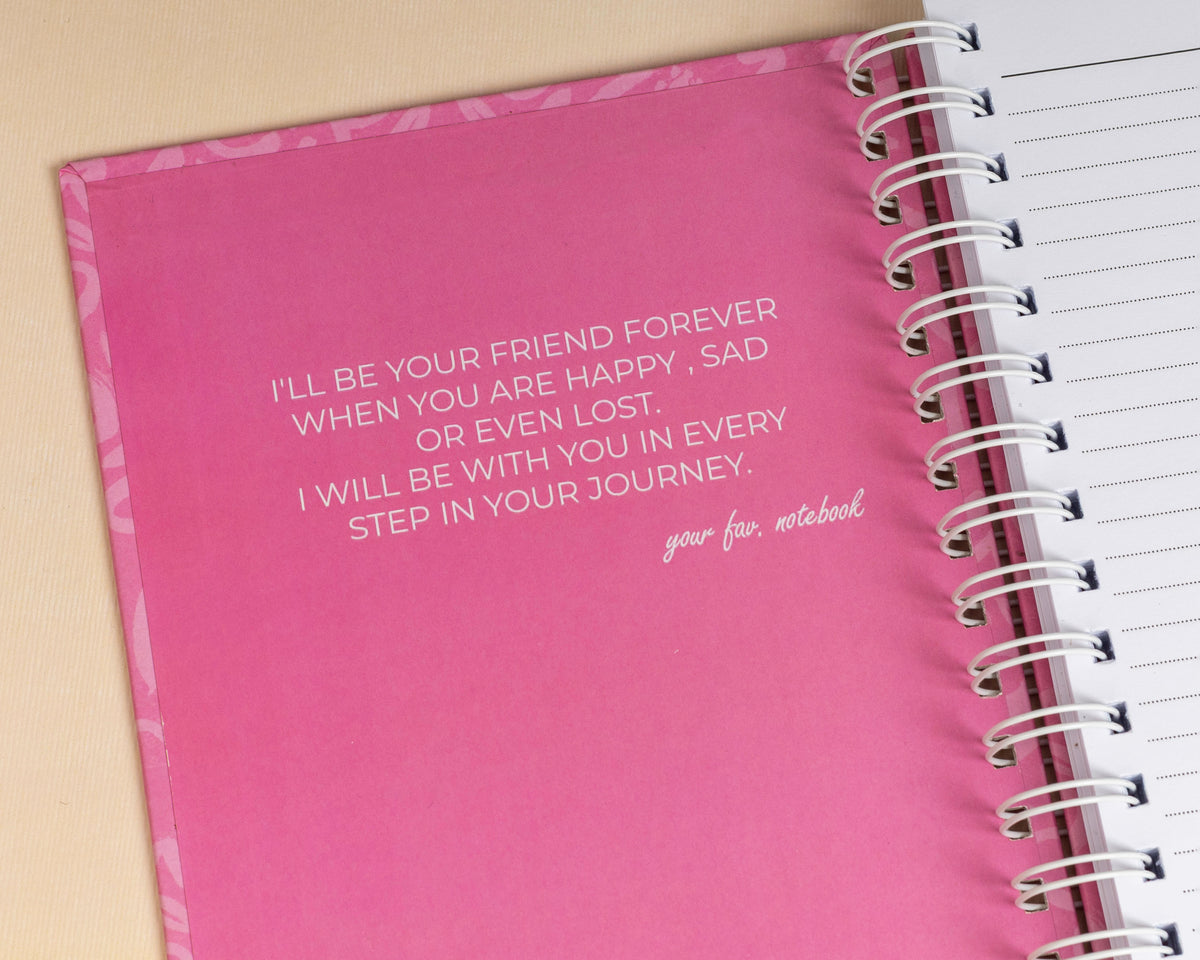 I'LL BE YOUR FRIEND FOREVER
WHEN YOU ARE HAPPY , SAD
OR EVEN LOST.
I WILL BE WITH YOU IN EVERY
STEP IN YOUR JOURNEY.
your fav. notebook